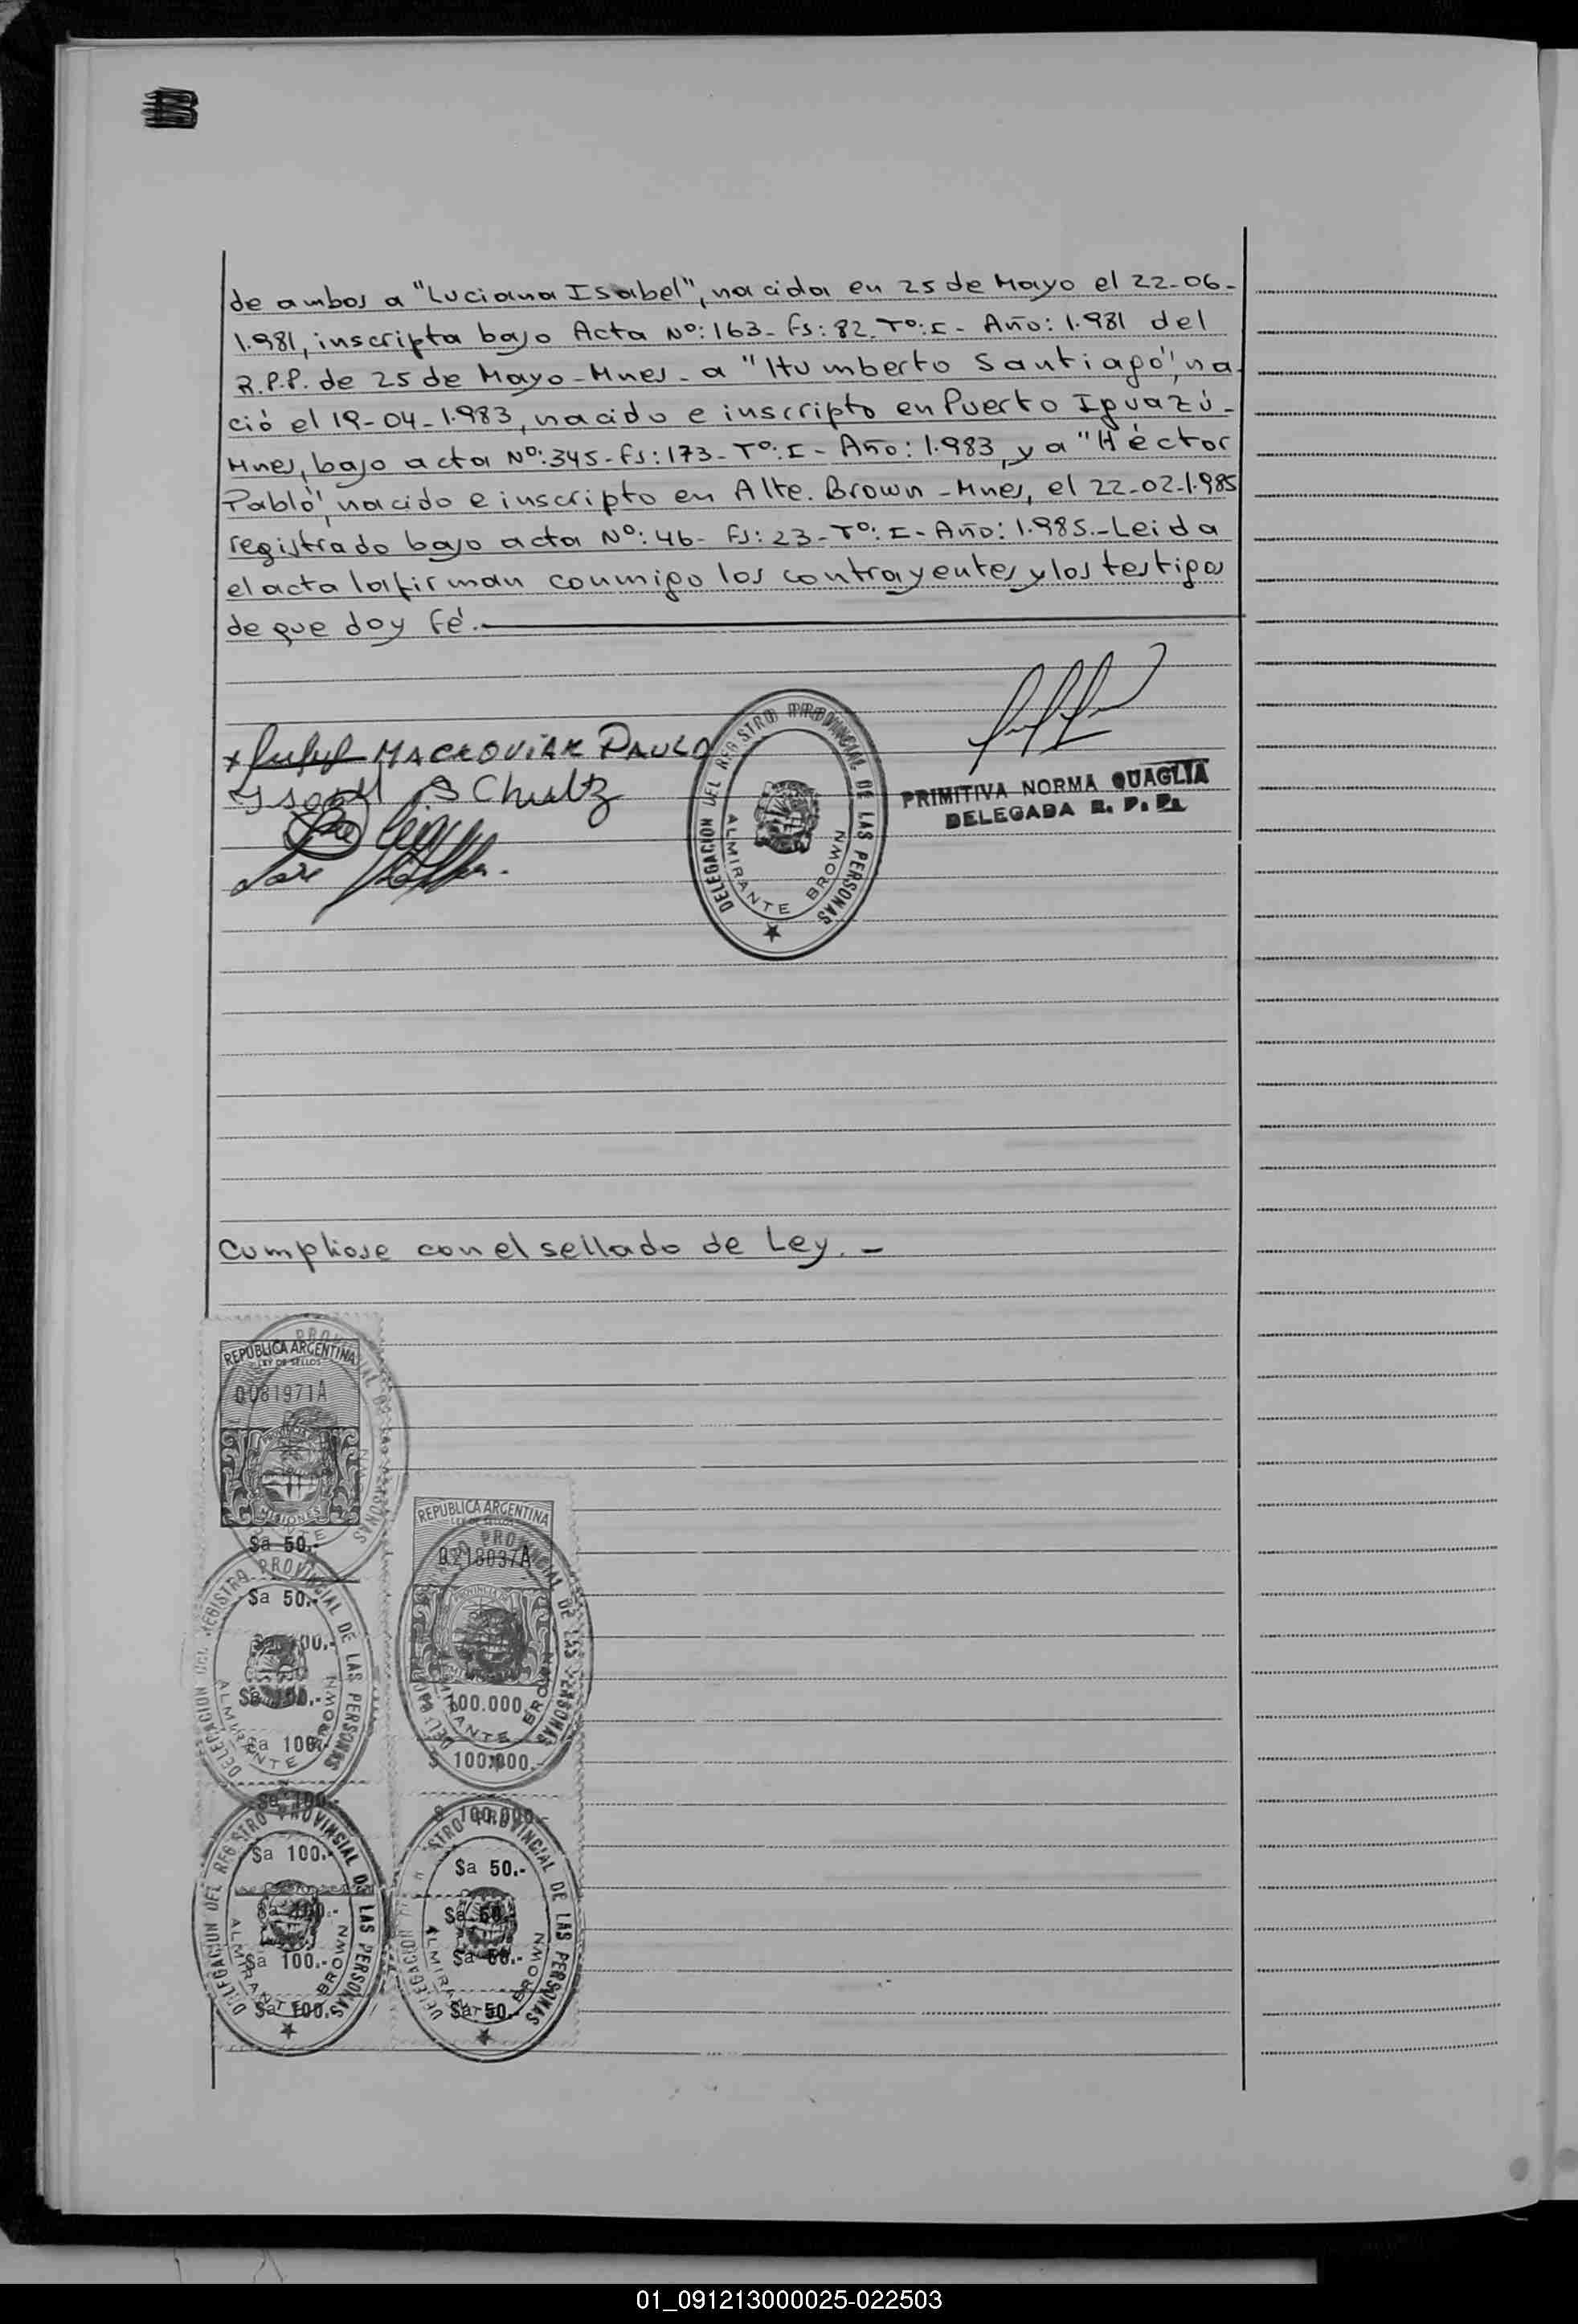 de ambos a "Luciana Isabel", nacida en 25 de Mayo el 22-06-
1.981, inscripta bajo Acta Nº: 163- fs: 82. Tº: I- Año: 1.981 del
R.P.P. de 25 de Mayo-Mnes- a "Humberto Santiago", na
ció el 19-04-1.983, nacido e inscripto en Puerto Iguazú-
Mnes, bajo acta Nº: 345- fs: 173- Tº: I- Año: 1.983, y a "Héctor
Pablo", nacido e inscripto en Alte. Brown-Mnes, el 22-02-1.985
registrado bajo acta Nº: 46- fs: 23- Tº: I- Año: 1.985.-Leida
el acta la firman conmigo los contrayentes y los testigos
de que doy fé.
MACROVIAK PAULO
Schultz
José
DELEGACION DEL REGISTRO PROVINCIAL DE LAS PERSONAS
ALMIRANTE BROWN
PRIMITIVA NORMA QUAGLIA
DELEGADA R. P. P.
Cumpliose con el sellado de Ley. -
REPUBLICA ARGENTINA
LEY DE SELLOS
0081971A
MISIONES
$a 50.-
$a 50.-
$a 100.-
$a 100.-
DELEGACION DEL REGISTRO PROVINCIAL DE LAS PERSONAS
ALMIRANTE BROWN
$a 100.-
$a 100.-
$a 100.-
$a 100.-
DELEGACION DEL REGISTRO PROVINCIAL DE LAS PERSONAS
ALMIRANTE BROWN
REPUBLICA ARGENTINA
LEY DE SELLOS
0218037A
100.000.-
$ 100.000.-
$ 100.000.-
$a 50.-
$a 50.-
$a 50.-
$a 50.-
DELEGACION DEL REGISTRO PROVINCIAL DE LAS PERSONAS
ALMIRANTE BROWN
01_091213000025-022503